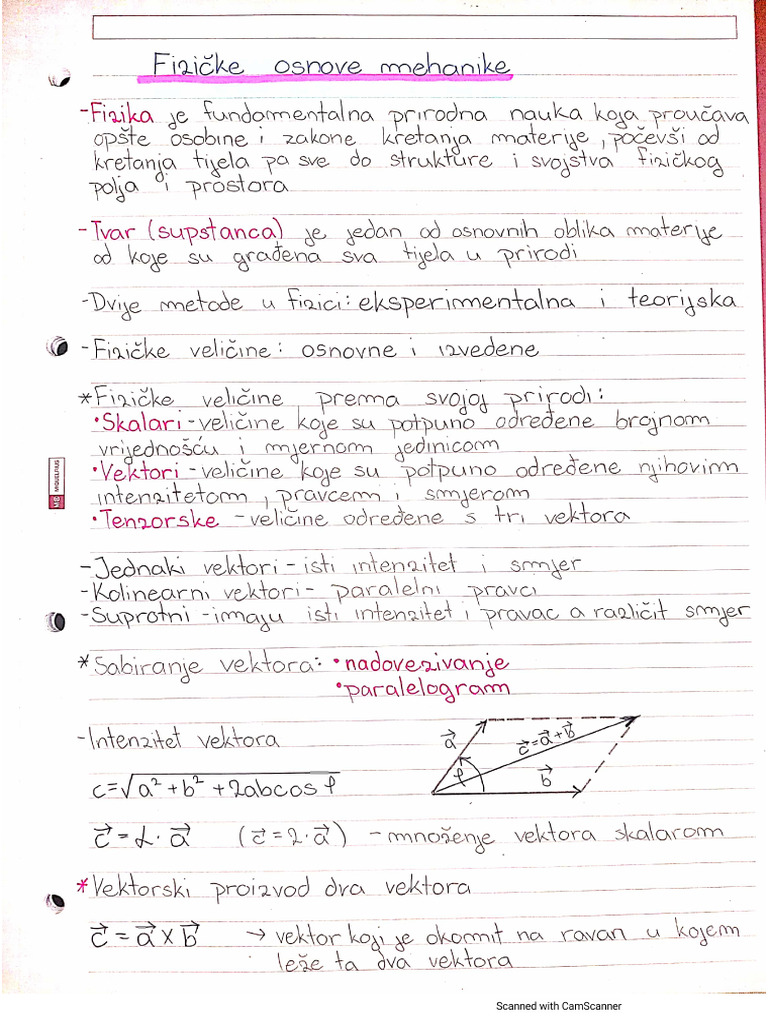 Fizičke osnove mehanike
-Fizika je fundamentalna prirodna nauka koja proučava
opšte osobine i zakone kretanja materije, počevši od
kretanja tijela pa sve do strukture i svojstva fizičkog
polja i prostora
-Tvar (supstanca) je jedan od osnovnih oblika materije
od koje su građena sva tijela u prirodi
-Dvije metode u fizici: eksperimentalna i teorijska
-Fizičke veličine: osnovne i izvedene
*Fizičke veličine prema svojoj prirodi:
•Skalari-veličine koje su potpuno određene brojnom
vrijednošću i mjernom jedinicom
•Vektori-veličine koje su potpuno određene njihovim
intenzitetom, pravcem i smjerom
•Tenzorske -veličine određene s tri vektora
MIQUELRIUS
-Jednaki vektori-isti intenzitet i smjer
-Kolinearni vektori- paralelni pravci
-Suprotni -imaju isti intenzitet i pravac a različit smjer
*Sabiranje vektora: •nadovezivanje
•paralelogram
-Intenzitet vektora
a⃗ c⃗=a⃗+b⃗
φ b⃗
c=√a²+b²+2abcosφ
c⃗=α·a⃗ (c⃗=2·a⃗) -množenje vektora skalarom
*Vektorski proizvod dva vektora
c⃗=a⃗×b⃗ → vektor koji je okomit na ravan u kojem
leže ta dva vektora
Scanned with CamScanner